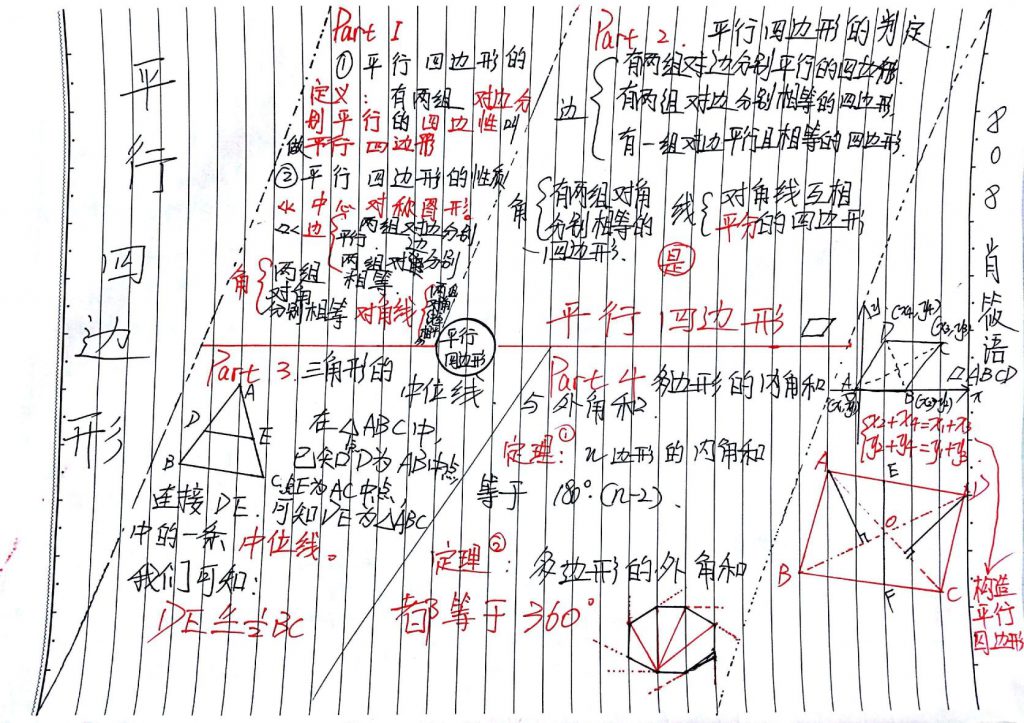 平行四边形
Part 1
① 平行四边形的
定义: 有两组 对边分
别平行的四边性叫
做平行四边形
② 平行四边形的性质
中心对称图形。
边
两组对边分别
平行
两组对边分别
相等
角
两组
对角
分别相等
对角线
平行
四边形
Part 2. 平行四边形的判定
边
有两组对边分别平行的四边形
有两组对边分别相等的四边形
有一组对边平行且相等的四边形
角
有两组对角
分别相等的
四边形.
线
对角线互相
平分的四边形
是
平行四边形
Part 3. 三角形的
中位线
A
D
E
B
C
在△ABC中,
已知点D为AB中点
点E为AC中点
连接DE. 可知DE为△ABC
中的一条 中位线。
我们可知:
DE ½BC
Part 4 多边形的内角和
与外角和.
定理①: n边形的内角和
等于 180°·(n-2).
定理②: 多边形的外角和
都等于360°
808 肖 语
y
D
(x4,y4)
C
(x3,y3)
A
(x1,y1)
B
(x2,y2)
x
▱ABCD
x2+x4=x1+x3
y2+y4=y1+y3
A
E
D
O
B
F
C
构造
平行
四边形